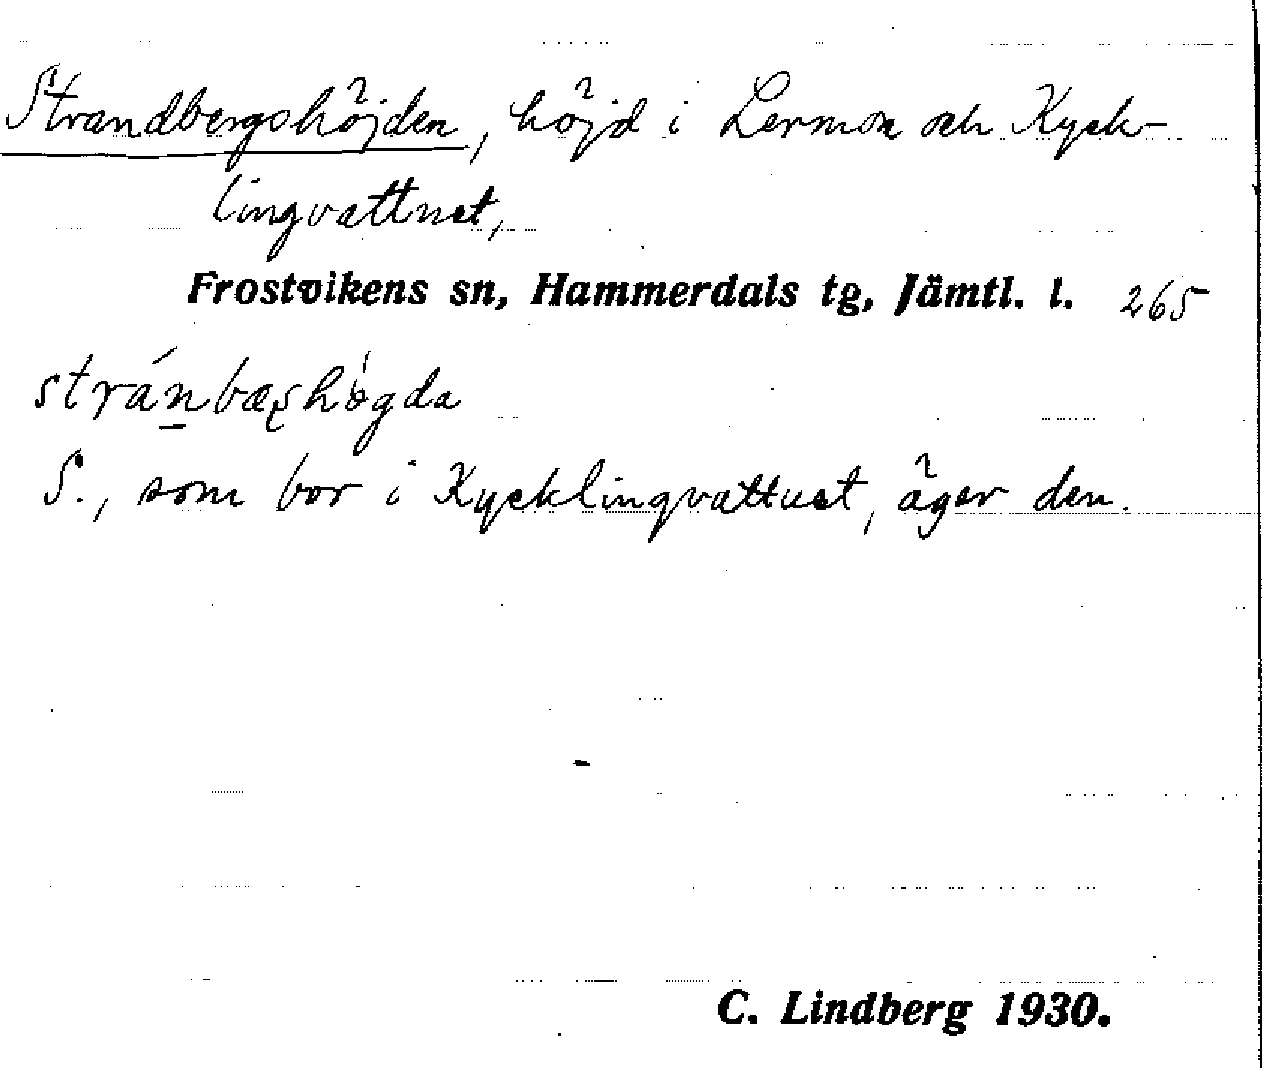 Strandbergshöjden, höjd i Lermon och Kyck-
lingvattnet,
Frostvikens sn, Hammerdals tg, Jämtl. l. 265
strán̲bæʂhø̀gda
S., som bor i Kycklingvattnet, äger den.
C. Lindberg 1930.